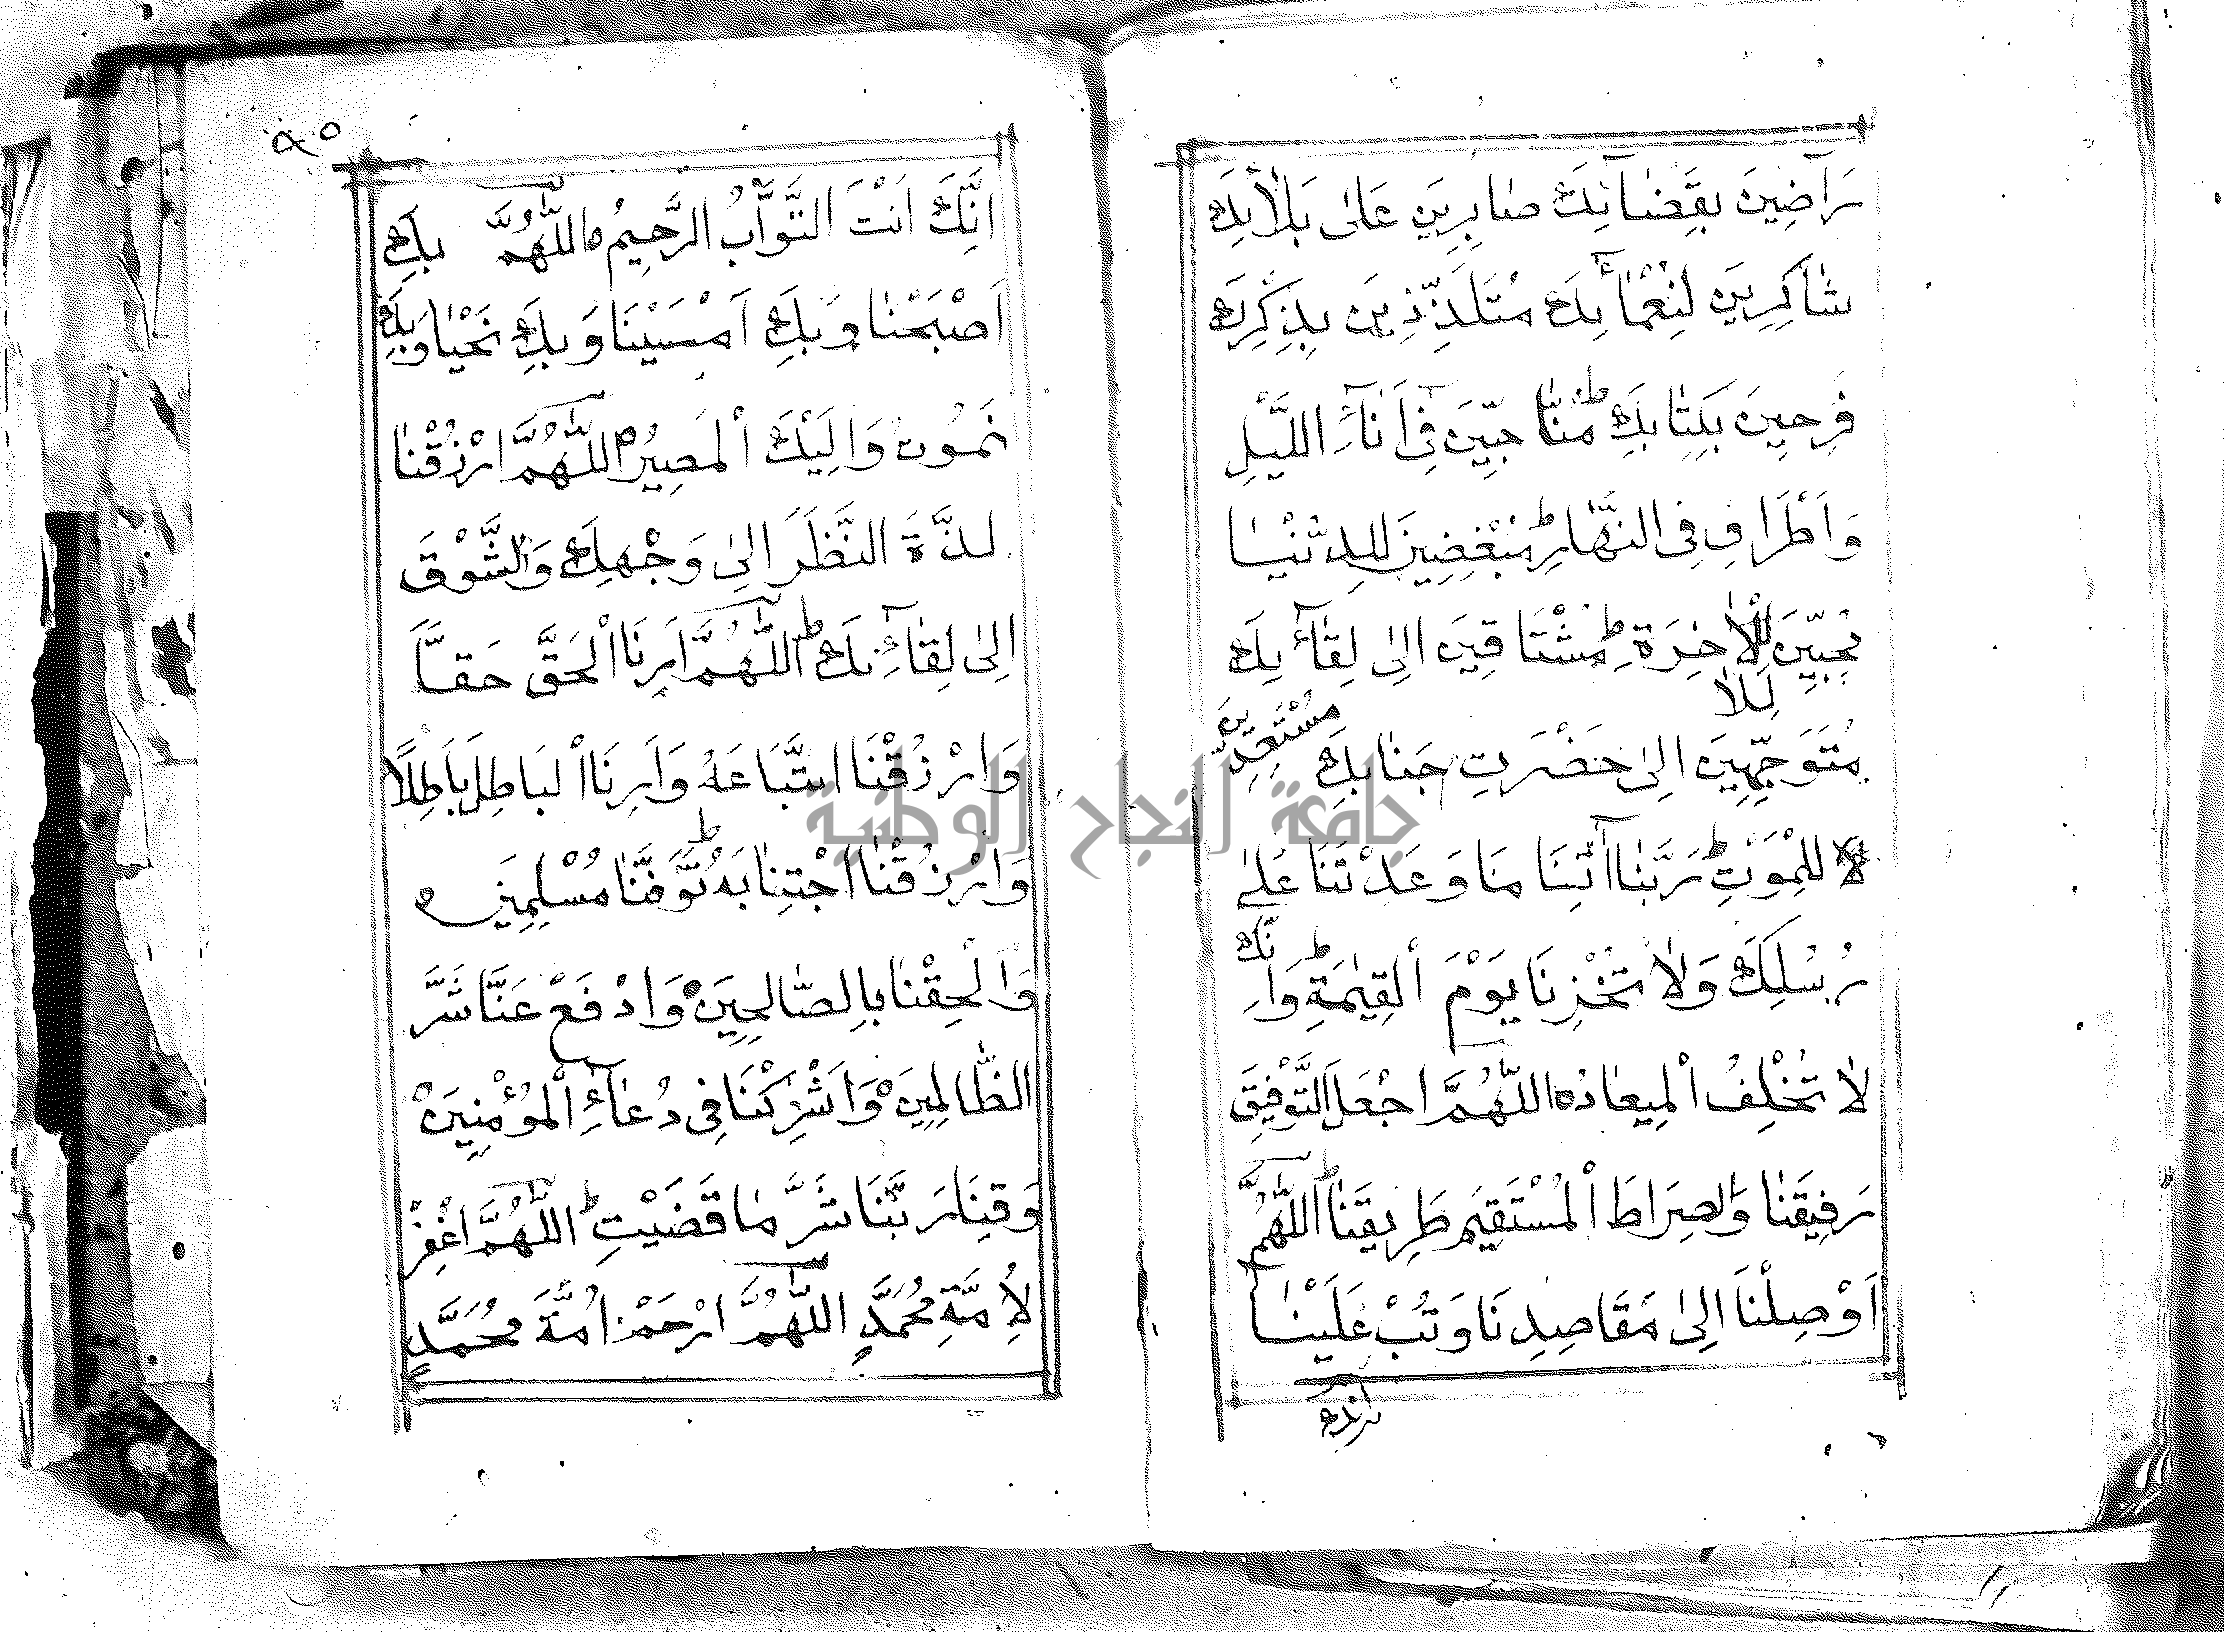 رَآضِينَ بِقَضَائِكَ صَابِرِينَ عَلٰى بَلَائِكَ
شَاكِرِينَ لِنَعْمَائِكَ مُتَلَذِّذِينَ بِذِكْرِكَ
فَرِحِينَ بِكِتَابِكَ مُنَاجِيّنَ فِي اٰنَآءِ اللَّيْلِ
وَاَطْرَافِ فِى النَّهَارِ مُبْغِضِينَ لِلدُّنْيَا
مُحِبِّينَ لِلْاٰخِرَةِ مُشْتَاقِينَ اِلٰى لِقَآئِكَ
لِلا
مُتَوَجِّهِينَ اِلٰى حَضْرَتِ جَنَابِكَ مُسْتَعِدِّينَ
لا لِلْمَوْتِ رَبَّنَا آتِنَا مَا وَعَدْتَنَا عَلٰى
رُسُلِكَ وَلَا تُخْزِنَا يَوْمَ الْقِيٰمَةِ وَاِنَّكَ
لَا تُخْلِفُ الْمِيعَادَ اللّٰهُمَّ اجْعَلِ التَّوْفِيقَ
رَفِيقَنَا وَالصِرَاطَ الْمُسْتَقِيمَ طَرِيقَنَا اللّٰهُمَّ
اَوْصِلْنَا اِلٰى مَقَاصِدِنَا وَتُبْ عَلَيْنَا
اِنَّكَ
٩٥
اِنَّكَ اَنْتَ التَّوَّابُ الرَّحِيمُ اللّٰهُمَّ بِكَ
اَصْبَحْنَا وَبِكَ اَمْسَيْنَا وَبِكَ نَحْيَا وَبِكَ
نَمُوتُ وَاِلَيْكَ الْمَصِيرُ اللّٰهُمَّ ارْزُقْنَا
لَذَّةَ النَّظَرَ اِلٰى وَجْهِكَ وَالشَّوْقَ
اِلٰى لِقَآئِكَ اللّٰهُمَّ اَرِنَا الْحَقَّ حَقًّا
وَارْزُقْنَا اتِّبَاعَهُ وَاَرِنَا الْبَاطِلَ بَاطِلًا
وَارْزُقْنَا اجْتِنَابَهُ تَوَفَّنَا مُسْلِمِينَ
وَالْحِقْنَا بِالصَّالِحِينَ وَادْفَعْ عَنَّا شَرَّ
الظَّالِمِينَ وَاَشْرِكْنَا فِى دُعَآءِ الْمُؤْمِنِينَ
وَقِنَا رَبَّنَا شَرَّ مَا قَضَيْتَ اللّٰهُمَّ اغْفِرْ
لِاُمَّةِ مُحَمَّدٍ اللّٰهُمَّ ارْحَمْ اُمَّةَ مُحَمَّدٍ
جامعة النجاح الوطنية